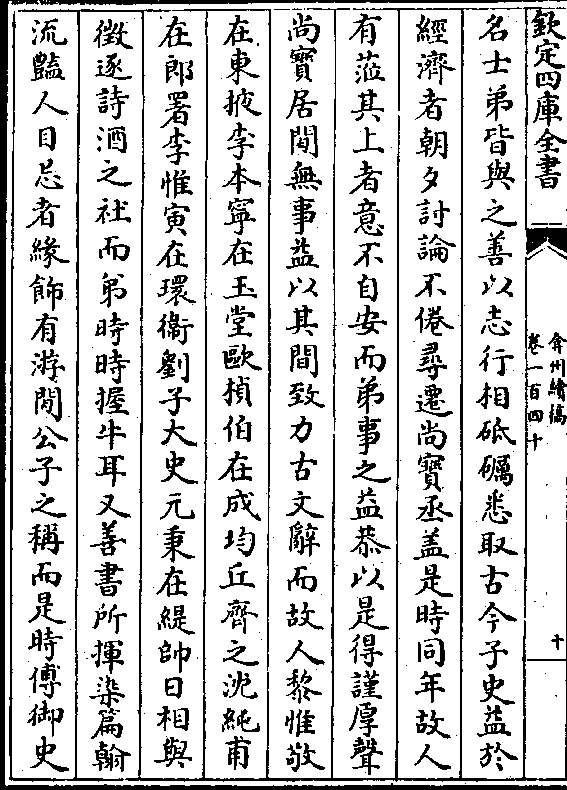 欽定四庫全書
弇州續稿
卷一百四十
十
名士弟皆與之善以志行相砥礪悉取古今子史益於
經濟者朝夕討論不倦尋遷尚寶丞盖是時同年故人
有蒞其上者意不自安而弟事之益恭以是得謹厚聲
尚寶居間無事益以其間致力古文辭而故人黎惟敬
在東掖李本寧在玉堂歐楨伯在成均丘齊之沈純甫
在郎署李惟寅在環衛劉子大史元秉在緹帥日相與
徵逐詩酒之社而弟時時握牛耳又善書所揮染篇翰
流豔人目忌者緣飾有游閒公子之稱而是時傅御史